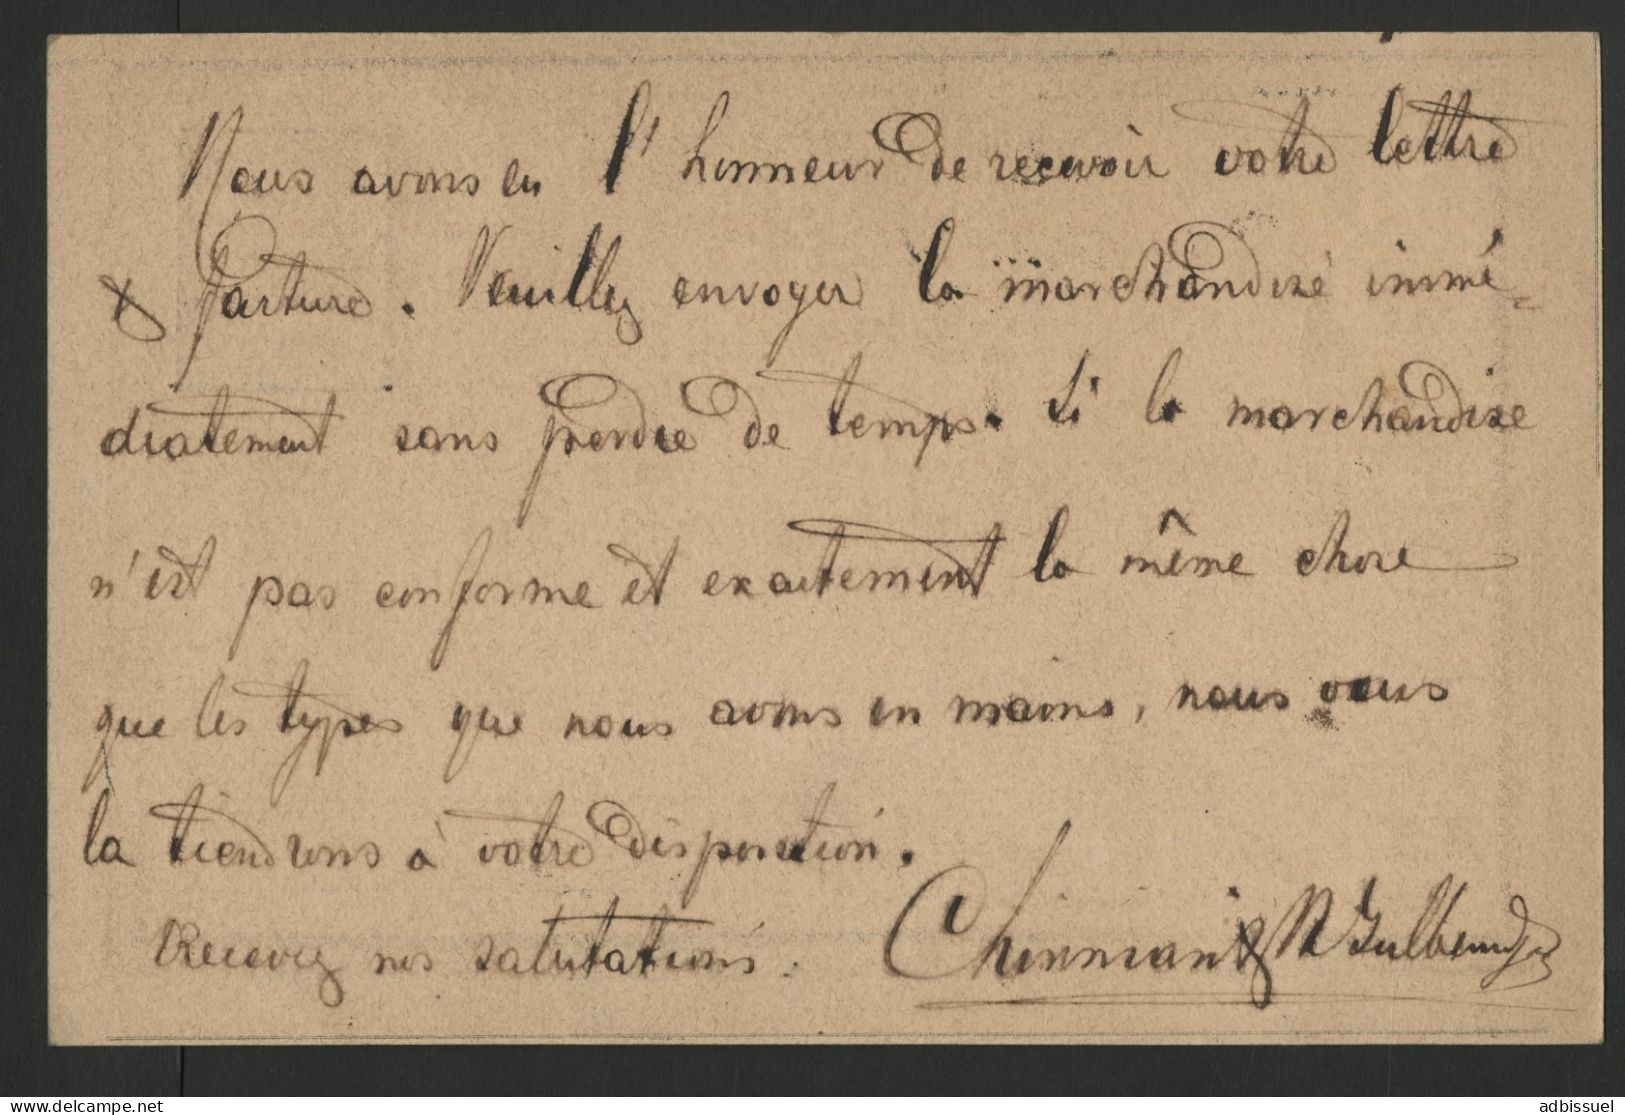 Nous avons eu l'honneur de recevoir votre lettre
& facture. Veuillez envoyer la marchandise immé-
diatement sans perdre de temps. Si la marchandise
n'est pas conforme et exactement la même chose
que les types que nous avons en mains, nous vous
la tiendrons à votre disposition.
Recevez nos salutations.
adbissuel